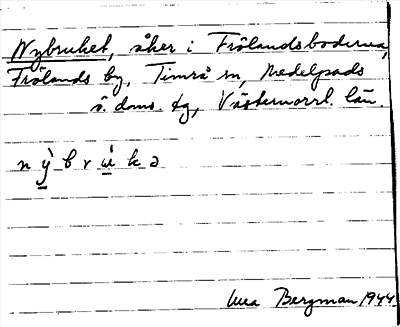 Nybruket, åker i Frölandsboderna,
Frölands by, Timrå sn, Medelpads
ö. doms. tg, Västernorrl. län.
n ỳ̠ b r u̠̇ k ə
Bergman 1944